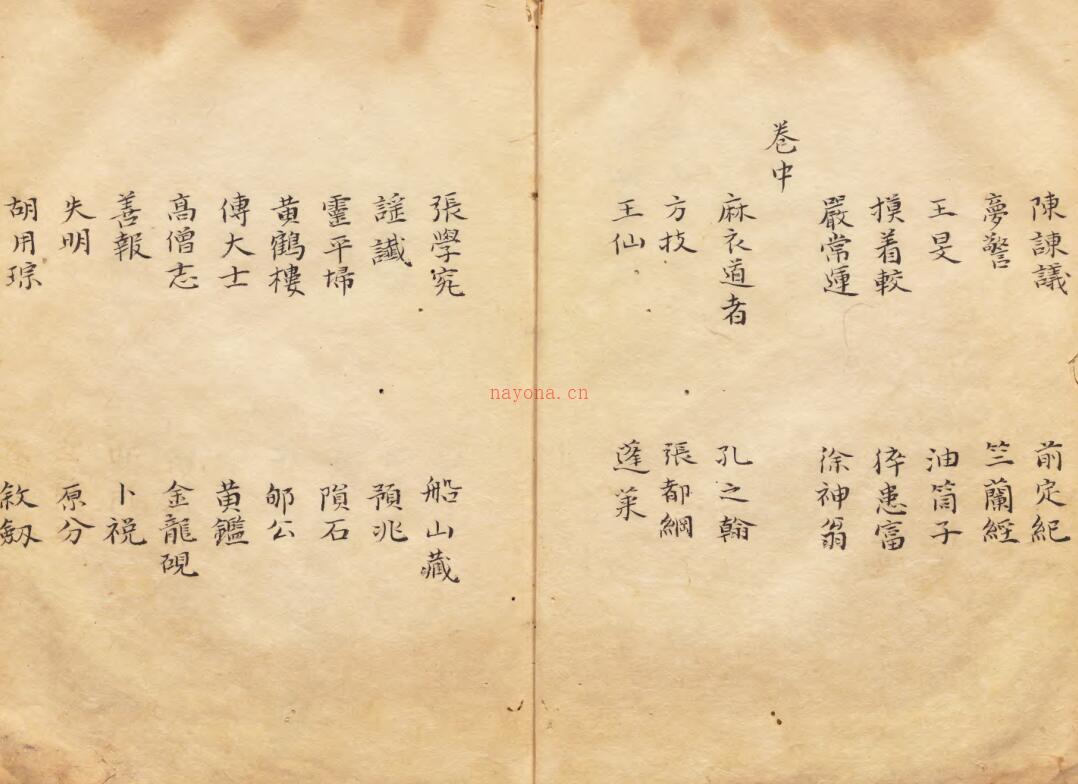 陳諫議 前定紀
夢警 竺蘭經
王旻 油筒子
摸着較 倅患富
嚴常運 徐神翁
卷中
麻衣道者 孔之翰
方技 張都綱
王仙 蓬萊
張學究 船山藏
謡讖 預兆
靈平埽 隕石
黄鶴樓 郇公
傅大士 黄鑑
高僧志 金龍硯
善報 卜説
失明 原分
胡用琮 敘劔
nayona.cn